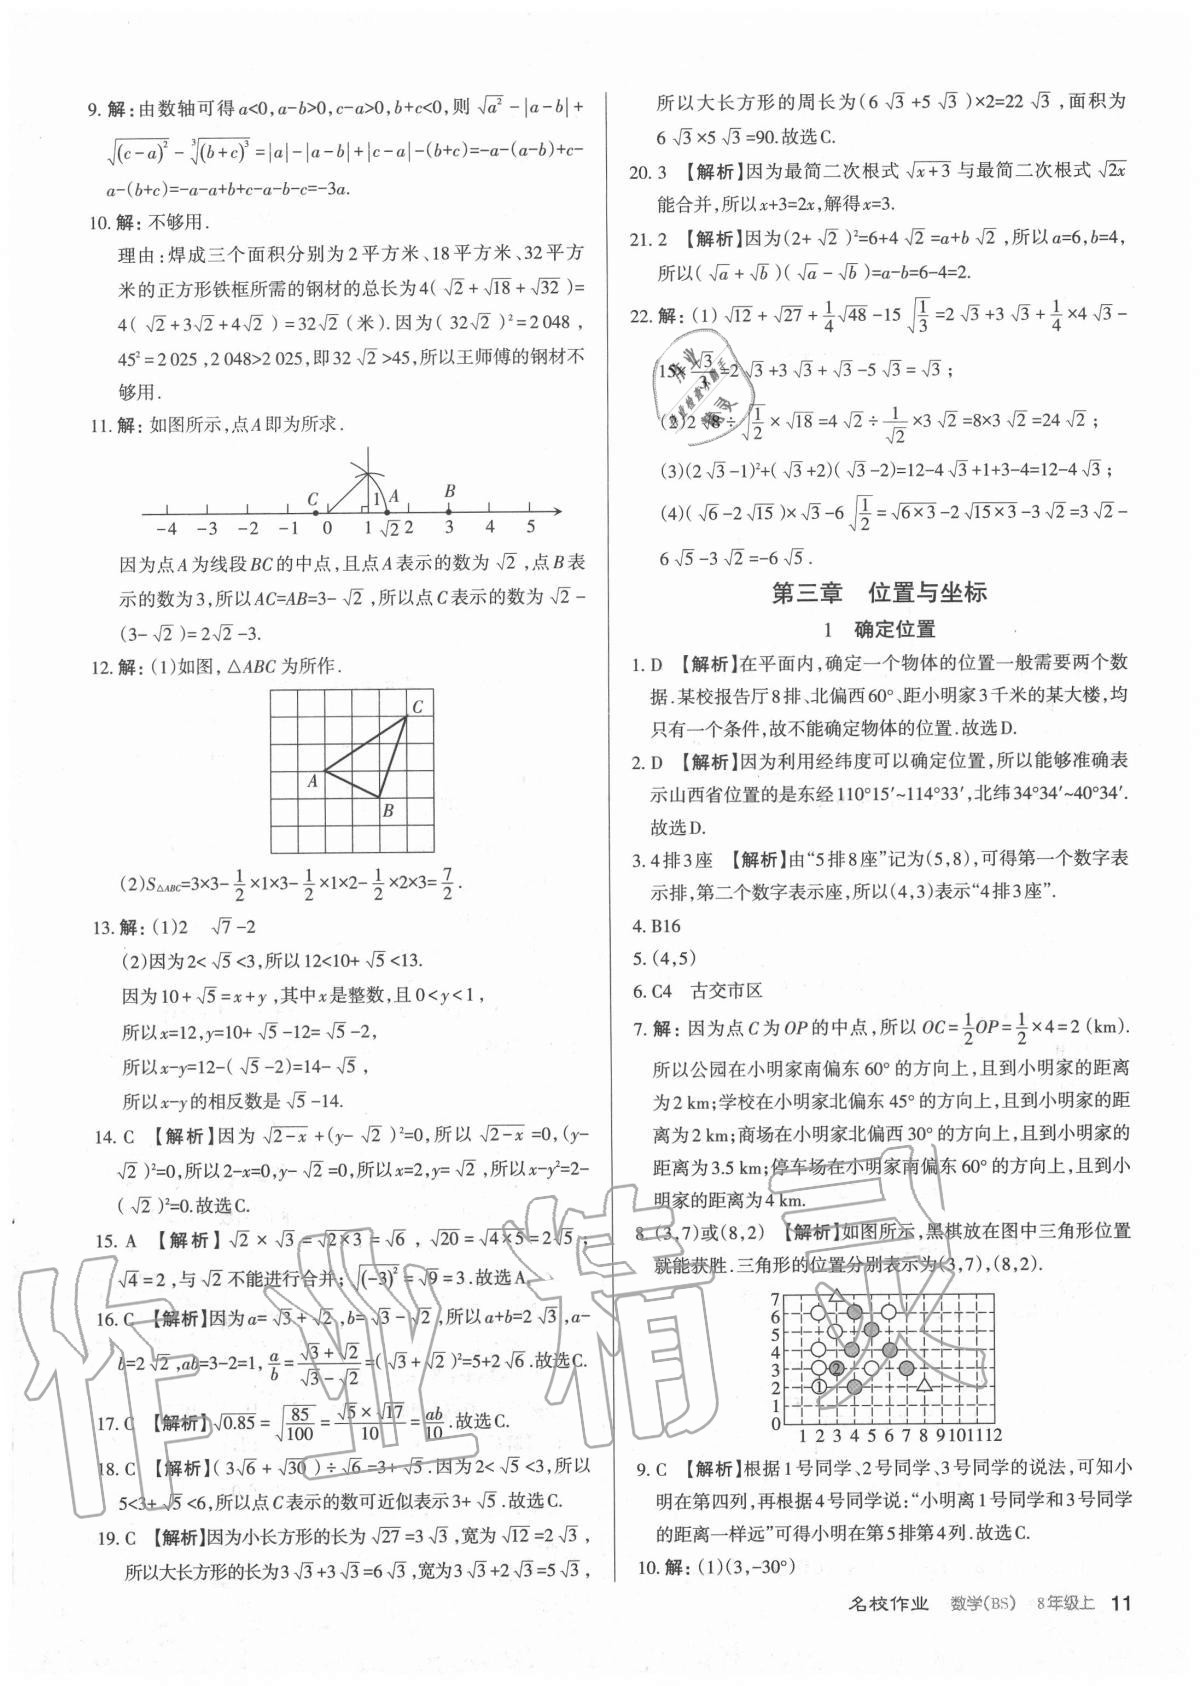 9. 解: 由数轴可得a<0,a-b>0,c-a>0,b+c<0,则 √a² - |a-b| +
√(c-a)² - ³√(b+c)³ =|a|-|a-b|+|c-a|-(b+c)=-a-(a-b)+c-
a-(b+c)=-a-a+b+c-a-b-c=-3a.
10. 解: 不够用.
理由:焊成三个面积分别为2平方米、18平方米、32平方
米的正方形铁框所需的钢材的总长为4(√2+√18+√32)=
4(√2+3√2+4√2)=32√2(米).因为(32√2)²=2 048,
45²=2 025,2 048>2 025,即32√2>45,所以王师傅的钢材不
够用.
11. 解: 如图所示,点A即为所求.
C 1 A B
-4 -3 -2 -1 0 1 √2 2 3 4 5
因为点A为线段BC的中点,且点A表示的数为√2,点B表
示的数为3,所以AC=AB=3-√2,所以点C表示的数为√2-
(3-√2)=2√2-3.
12. 解: (1)如图,△ABC为所作.
C
A
B
(2)S△ABC=3×3-1/2×1×3-1/2×1×2-1/2×2×3=7/2.
13. 解: (1)2 √7-2
(2)因为2<√5<3,所以12<10+√5<13.
因为10+√5=x+y,其中x是整数,且0<y<1,
所以x=12,y=10+√5-12=√5-2,
所以x-y=12-(√5-2)=14-√5,
所以x-y的相反数是√5-14.
14. C 【解析】因为√2-x+(y-√2)²=0,所以√2-x=0,(y-
√2)²=0,所以2-x=0,y-√2=0,所以x=2,y=√2,所以x-y²=2-
(√2)²=0.故选C.
15. A 【解析】√2×√3=√2×3=√6,√20=√4×5=2√5;
√4=2,与√2不能进行合并;√(-3)²=√9=3.故选A.
16. C 【解析】因为a=√3+√2,b=√3-√2,所以a+b=2√3,a-
b=2√2,ab=3-2=1,a/b=(√3+√2)/(√3-√2)=(√3+√2)²=5+2√6.故选C.
17. C 【解析】√0.85=√85/100=(√5×√17)/10=ab/10.故选C.
18. C 【解析】(3√6+√30)÷√6=3+√5.因为2<√5<3,所以
5<3+√5<6,所以点C表示的数可近似表示3+√5.故选C.
19. C 【解析】因为小长方形的长为√27=3√3,宽为√12=2√3,
所以大长方形的长为3√3+3√3=6√3,宽为3√3+2√3=5√3,
所以大长方形的周长为(6√3+5√3)×2=22√3,面积为
6√3×5√3=90.故选C.
20. 3 【解析】因为最简二次根式√x+3与最简二次根式√2x
能合并,所以x+3=2x,解得x=3.
21. 2 【解析】因为(2+√2)²=6+4√2=a+b√2,所以a=6,b=4,
所以(√a+√b)(√a-√b)=a-b=6-4=2.
22. 解: (1)√12+√27+1/4√48-15√1/3=2√3+3√3+1/4×4√3-
15×√3/3=2√3+3√3+√3-5√3=√3;
(2)2√8÷√1/2×√18=4√2÷1/√2×3√2=8×3√2=24√2;
(3)(2√3-1)²+(√3+2)(√3-2)=12-4√3+1+3-4=12-4√3;
(4)(√6-2√15)×√3-6√1/2=√6×3-2√15×3-3√2=3√2-
6√5-3√2=-6√5.
第三章 位置与坐标
1 确定位置
1. D 【解析】在平面内,确定一个物体的位置一般需要两个数
据.某校报告厅8排、北偏西60°、距小明家3千米的某大楼,均
只有一个条件,故不能确定物体的位置.故选D.
2. D 【解析】因为利用经纬度可以确定位置,所以能够准确表
示山西省位置的是东经110°15′~114°33′,北纬34°34′~40°34′.
故选D.
3. 4排3座 【解析】由“5排8座”记为(5,8),可得第一个数字表
示排,第二个数字表示座,所以(4,3)表示“4排3座”.
4. B16
5. (4,5)
6. C4 古交市区
7. 解: 因为点C为OP的中点,所以OC=1/2OP=1/2×4=2(km).
所以公园在小明家南偏东60°的方向上,且到小明家的距离
为2 km;学校在小明家北偏东45°的方向上,且到小明家的距
离为2 km;商场在小明家北偏西30°的方向上,且到小明家的
距离为3.5 km;停车场在小明家南偏东60°的方向上,且到小
明家的距离为4 km.
8. (3,7)或(8,2) 【解析】如图所示,黑棋放在图中三角形位置
就能获胜.三角形的位置分别表示为(3,7),(8,2).
7
6
5
4
3 2
2 1
1
0
1 2 3 4 5 6 7 8 9 10 11 12
9. C 【解析】根据1号同学、2号同学、3号同学的说法,可知小
明在第四列,再根据4号同学说:“小明离1号同学和3号同学
的距离一样远”可得小明在第5排第4列.故选C.
10. 解: (1)(3,-30°)
名校作业 数学(BS) 8年级上 11
作业精灵